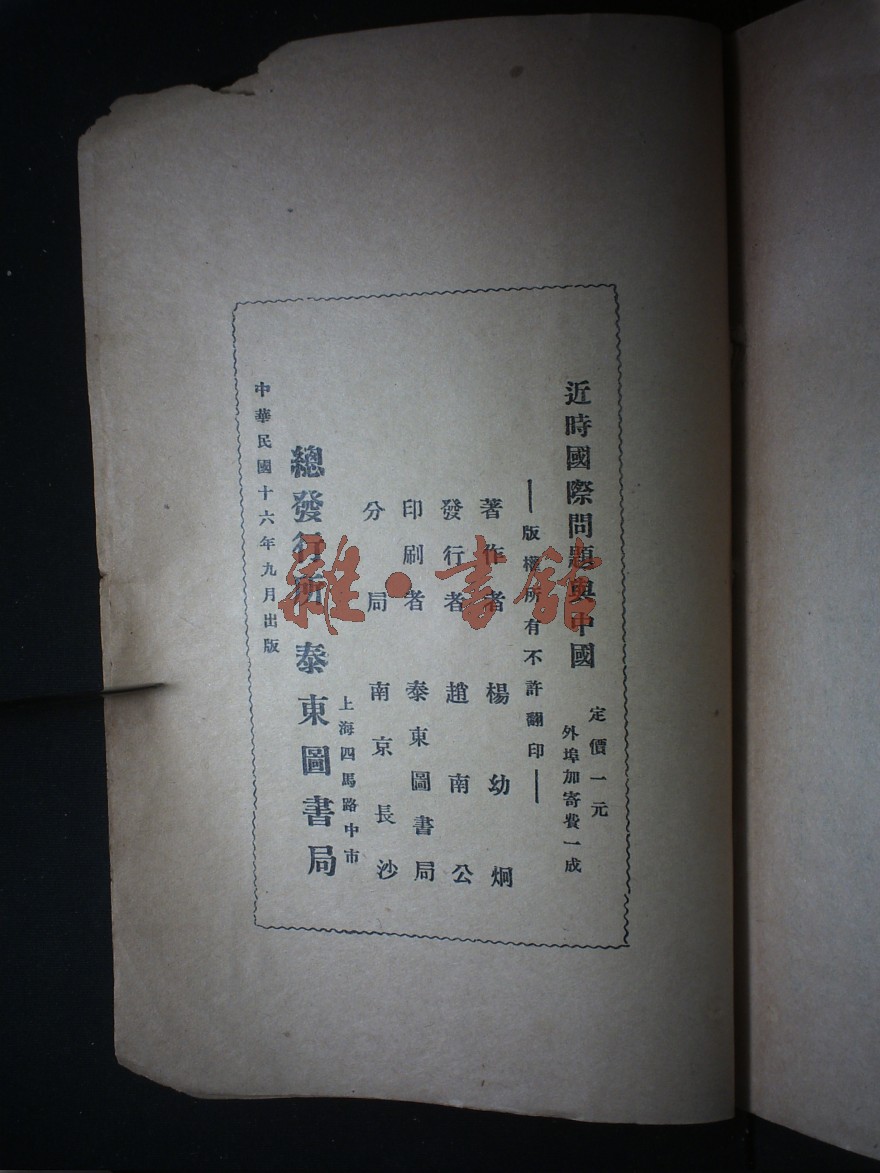 近時國際問題與中國
定價一元
外埠加寄費一成
版權所有不許翻印
著作者 楊幼炯
發行者 趙南公
印刷者 泰東圖書局
分局 南京長沙
上海四馬路中市
總發行所 泰東圖書局
中華民國十六年九月出版
雜·書館